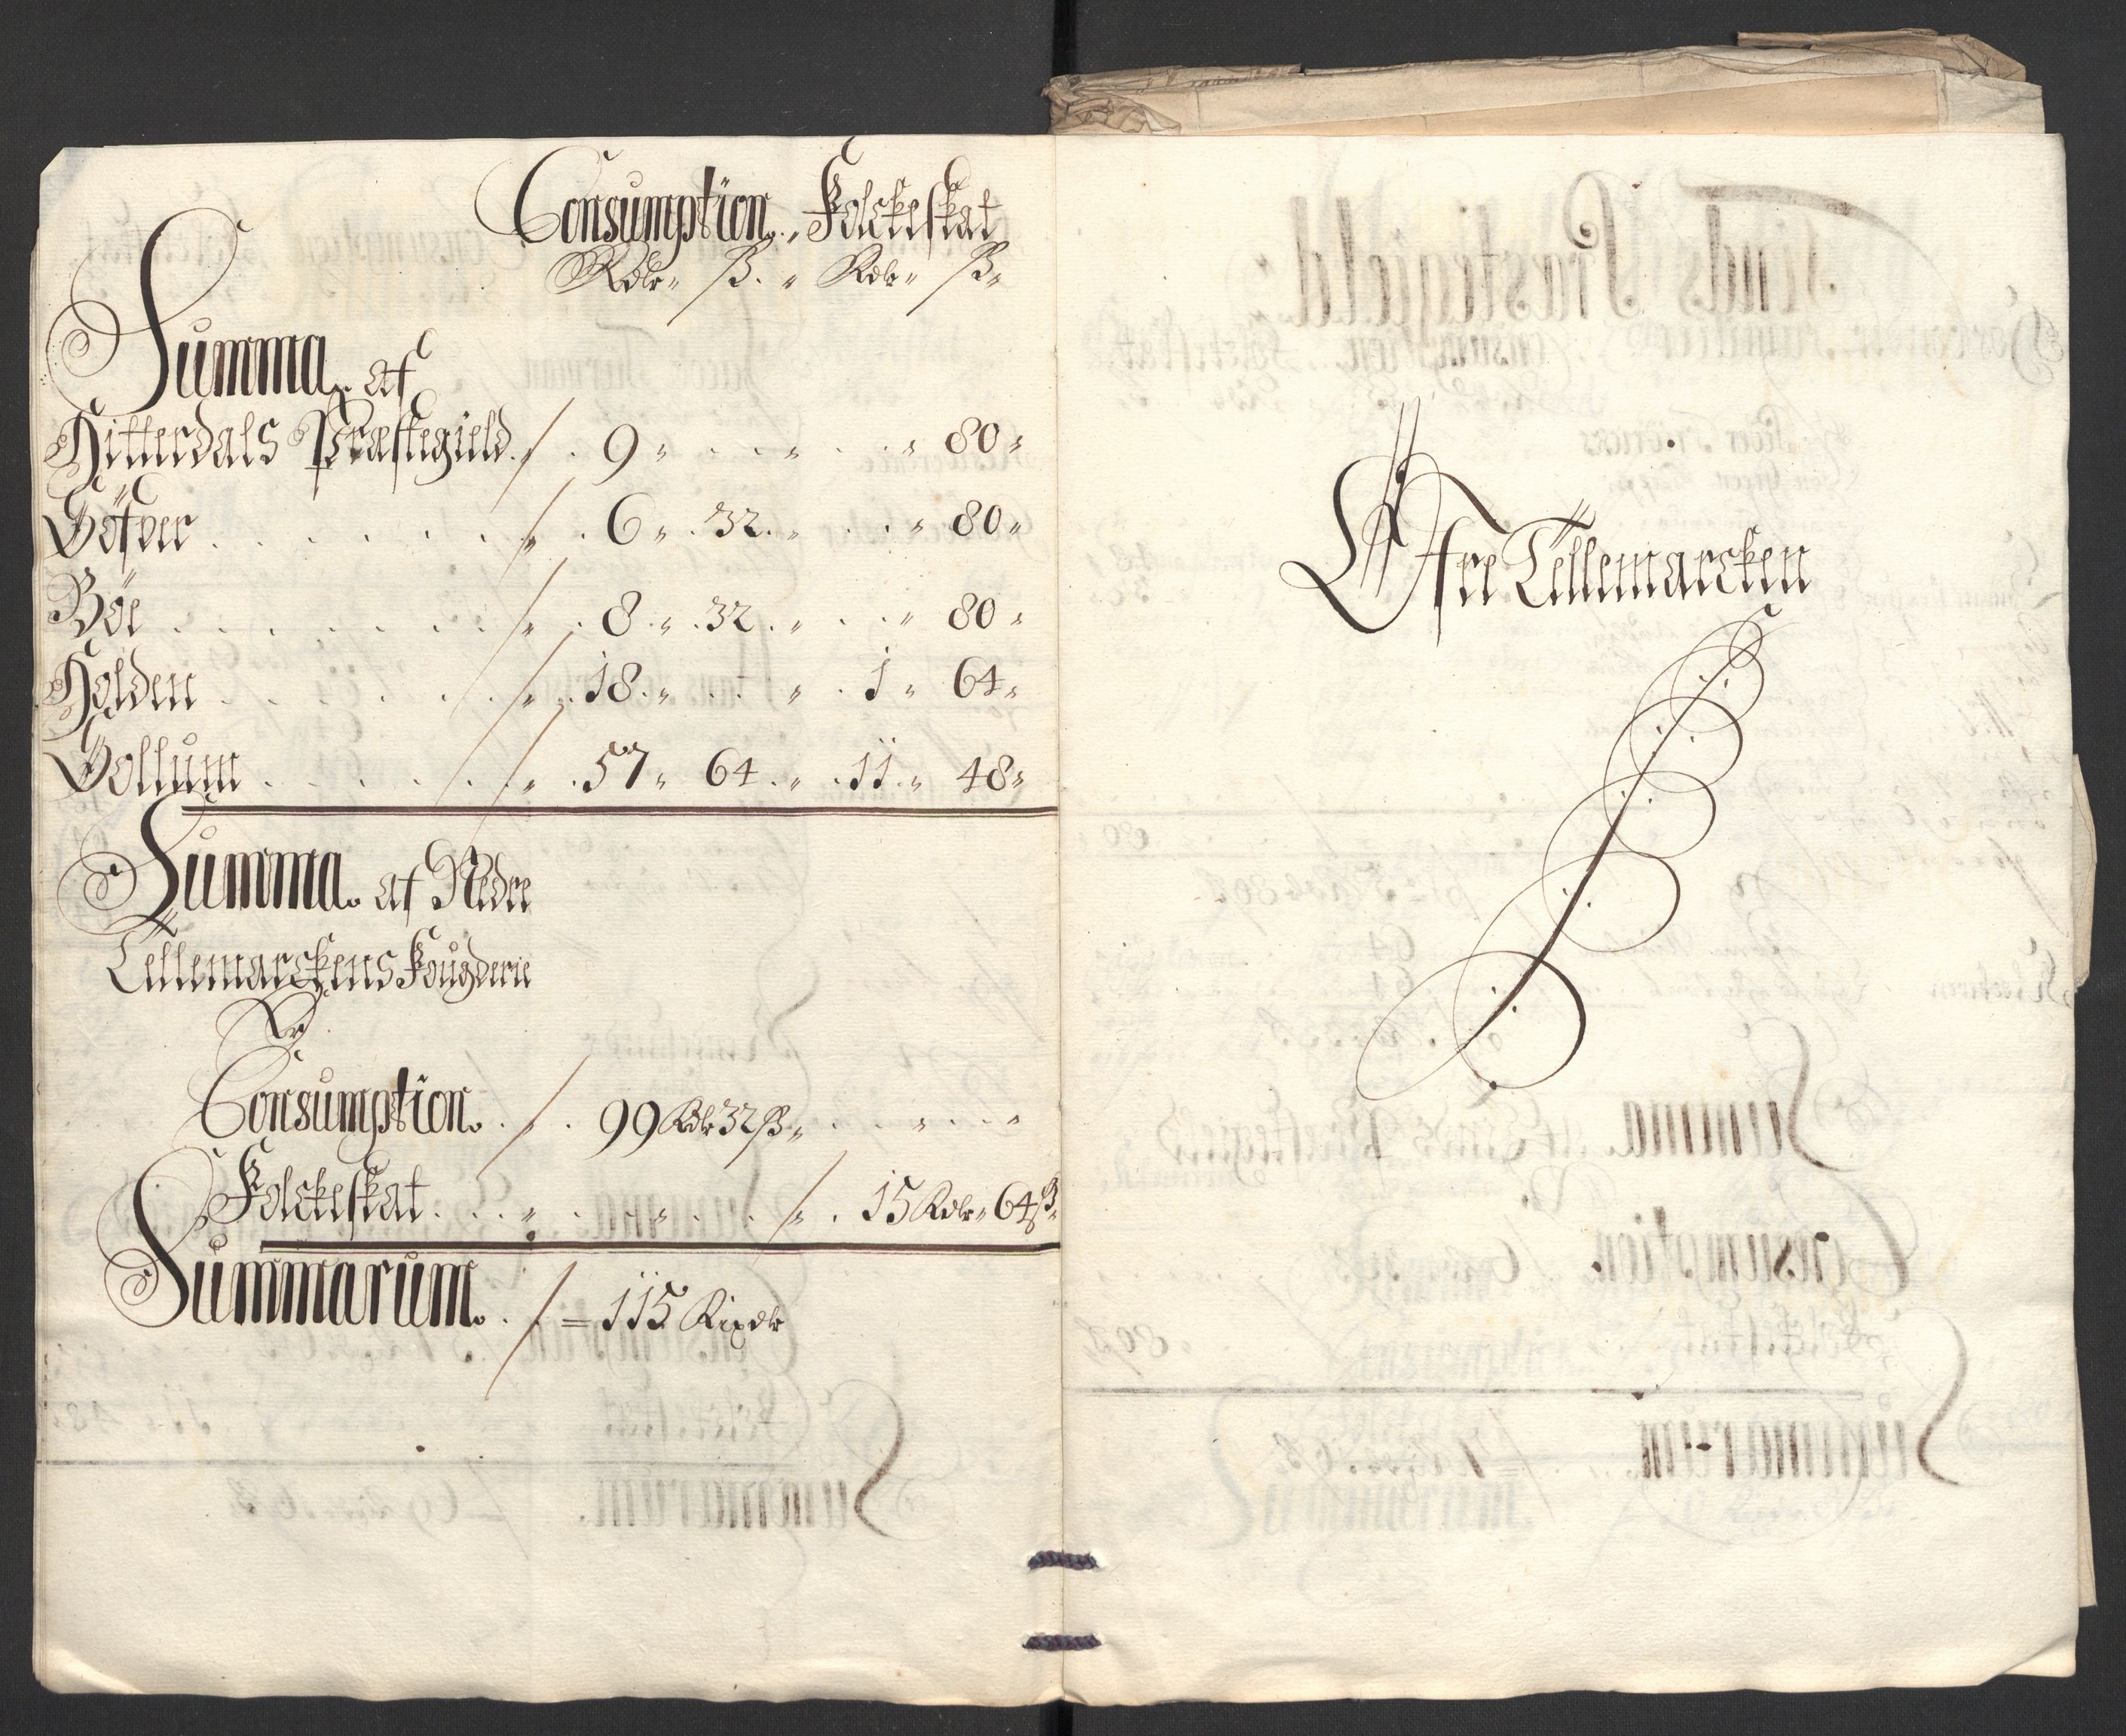 Consumption. Folckeskat
Rdlr ß. Rdlr ß
Summa. af
Hitterdals Præstegield. 9 80
Söfver 6 32 80
Böe 8 32 80
Holden 18 1 64
Sollum 57 64 11 48
Summa. af Nedre
Tellemarckens Fougderie
Consumption. 99 Rdlr 32 ß
Folckeskat 15 Rdlr 64 ß
Summarum. = 115 Rixdlr
Öfre Tellemarcken